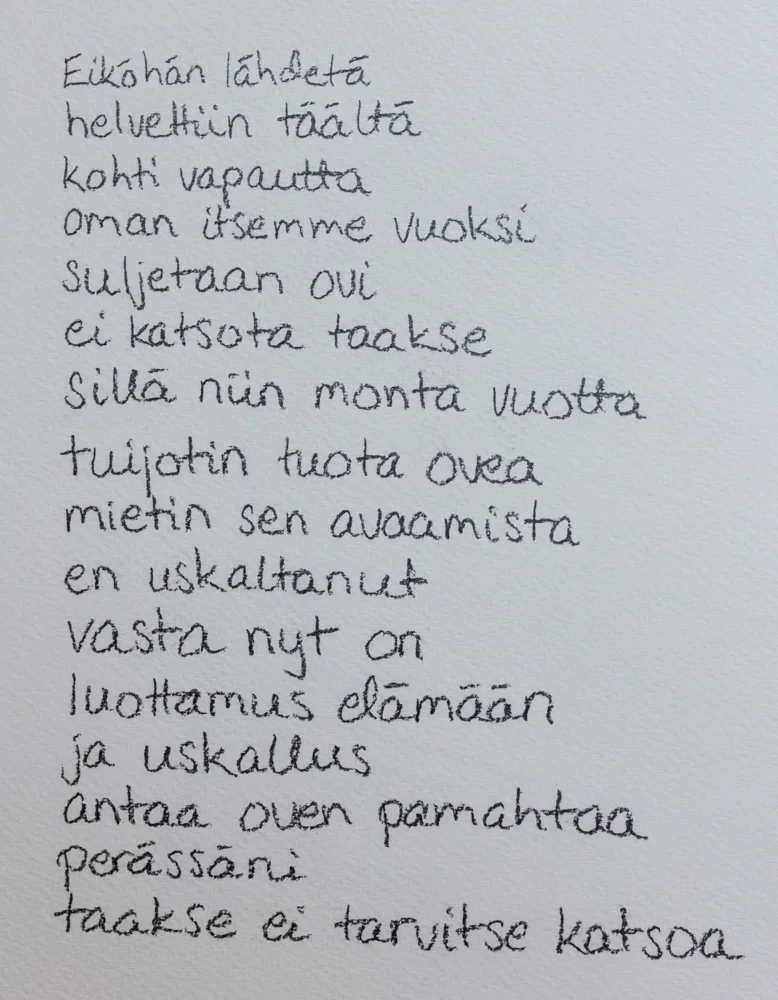 Eiköhän lähdetä
helvettiin täältä
kohti vapautta
oman itsemme vuoksi
suljetaan ovi
ei katsota taakse
sillä niin monta vuotta
tuijotin tuota ovea
mietin sen avaamista
en uskaltanut
vasta nyt on
luottamus elämään
ja uskallus
antaa oven pamahtaa
perässäni
taakse ei tarvitse katsoa